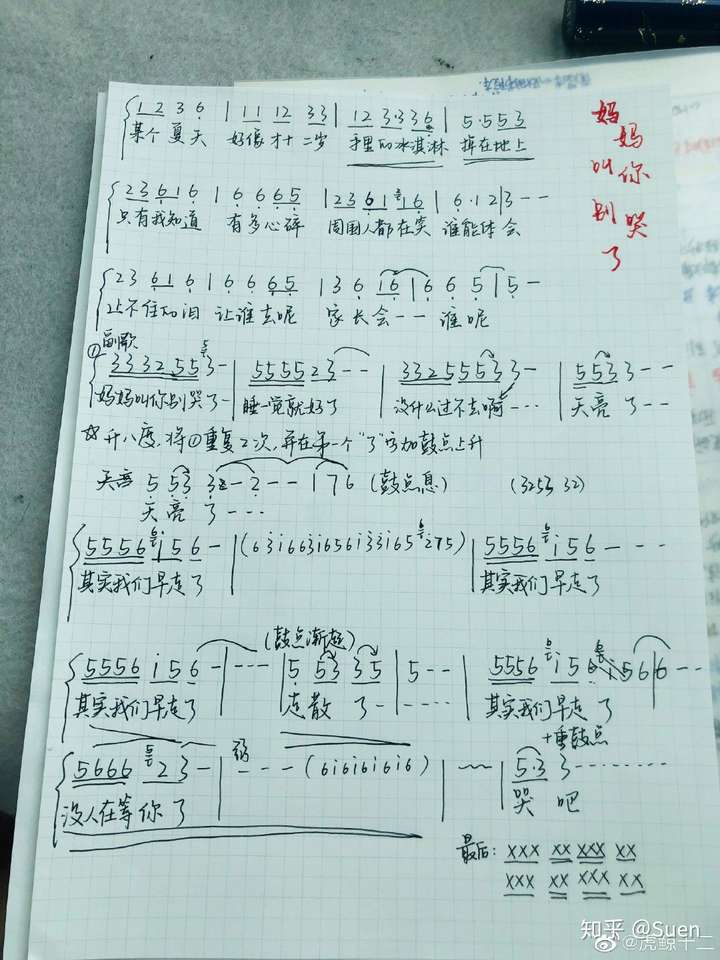 妈妈叫你别哭了
1 2 3 6 | 1 1 1 2 3 3 | 1 2 3·3 3 6 | 5·5 5 3
某个 夏天 好像才十二岁 手里的冰淇淋 掉在地上
2 3 6 1 6 | 6 6 6 6 5 | 2 3 6 1 1 6 | 6·1 2 | 3 - -
只有我知道 有多心碎 周围人都在笑 谁能体会
2 3 6 1 6 | 6 6 6 6 5 | 3 6 1 6 | 6 6 5 | 5 -
止不住的泪 让谁去呢 家长会 - - 谁呢
副歌
① 3 3 3 2 5 5 3 - | 5 5 5 5 2 3 - - | 3 3 2 5 5 5 3 3 - | 5 5 3 3 - -
妈妈叫你别哭了 - 睡一觉就好了 没什么过不去啊 - - - 天亮 了 - - -
☆升八度,将①重复2次,并在第一个"了"字加鼓点上升
天亮 5 5 3 3 - 2 - - 1 7 6 (鼓点息) (3253 32)
天亮 了 - - - -
5 5 5 6 i 5 6 - | (6 3 i 6 6 3 i 6 5 6 i 3 3 i 6 5 i 2 7 5) | 5 5 5 6 i 5 6 - - -
其实我们早走了 其实我们早走了
(鼓点渐起)
5 5 5 6 i 5 6 - | - - - | 5 5 3 3 5 | 5 - - | 5 5 5 6 i 5 6 i 5 6 | 6 - - -
其实我们早走了 走散 了 - - - - - 其实我们早走了
+重鼓点
5 6 6 6 2 3 - | - - - - (6 i 6 i 6 i 6 i 6) | 5·3 3 - - - - - - - -
没人在等你了 哭 吧
最后: XXX XX XXX XX
XXX XX XXX XX
知乎 @Suen
@虎鲸十二